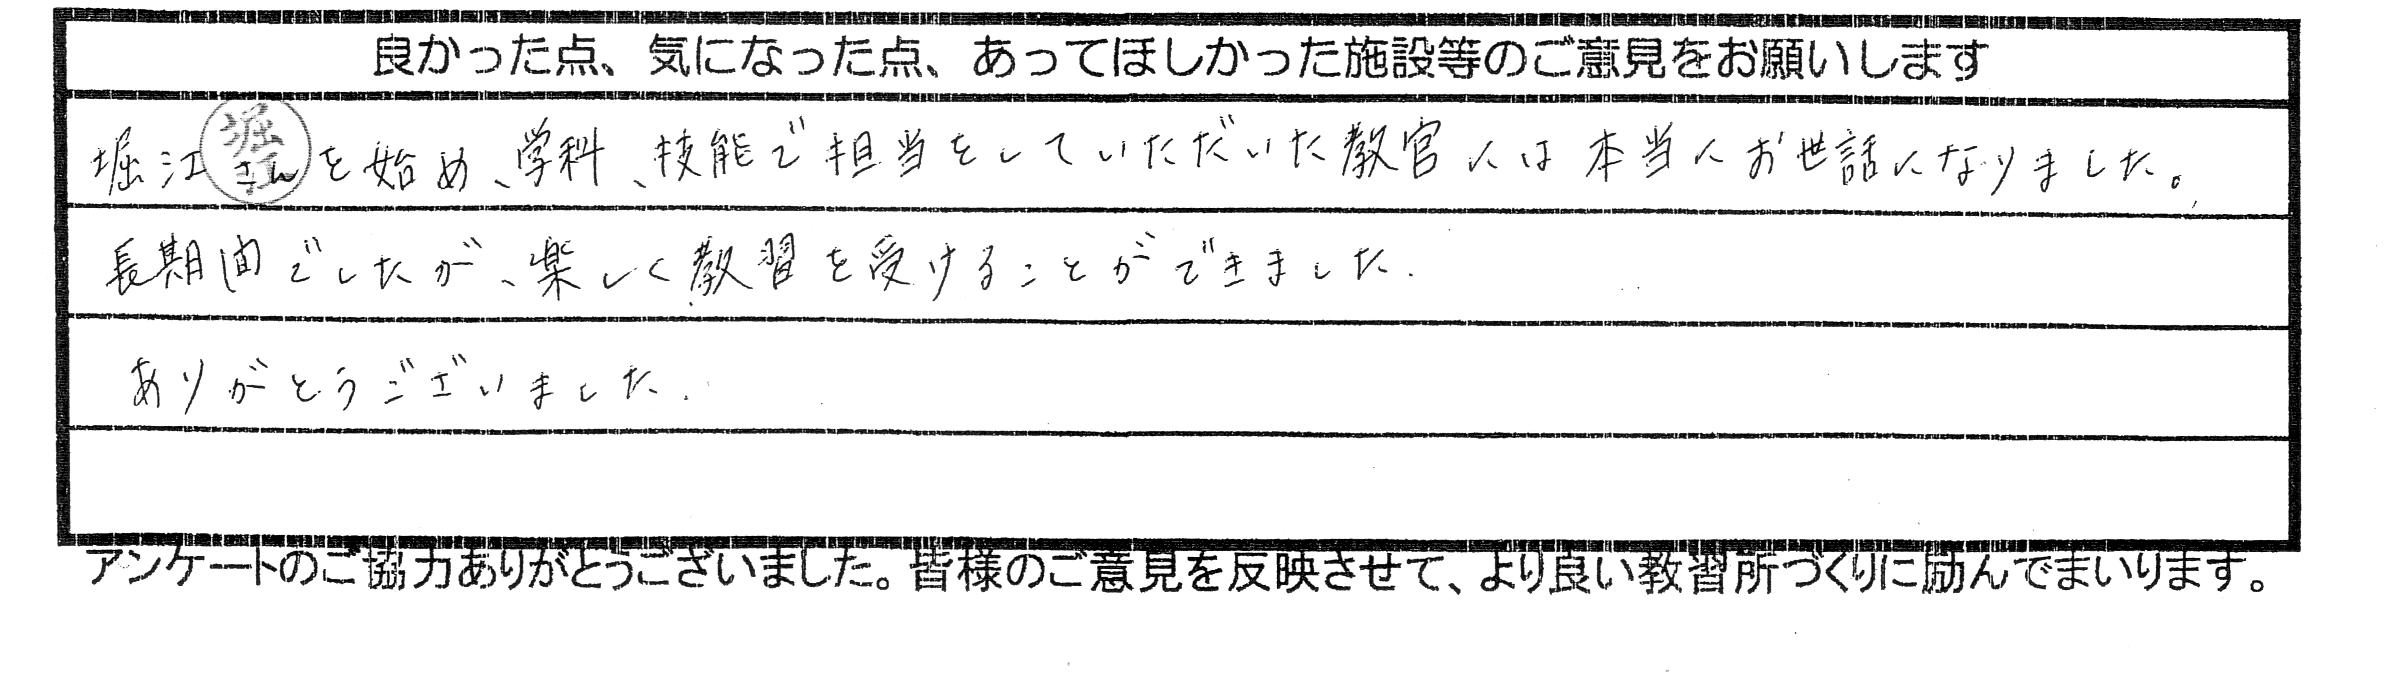 良かった点、気になった点、あってほしかった施設等のご意見をお願いします
堀江さんを始め、学科、技能で担当をしていただいた教官には本当にお世話になりました。
堀江
長期間でしたが、楽しく教習を受けることができました.
ありがとうございました.
アンケートのご協力ありがとうございました。皆様のご意見を反映させて、より良い教習所づくりに励んでまいります。